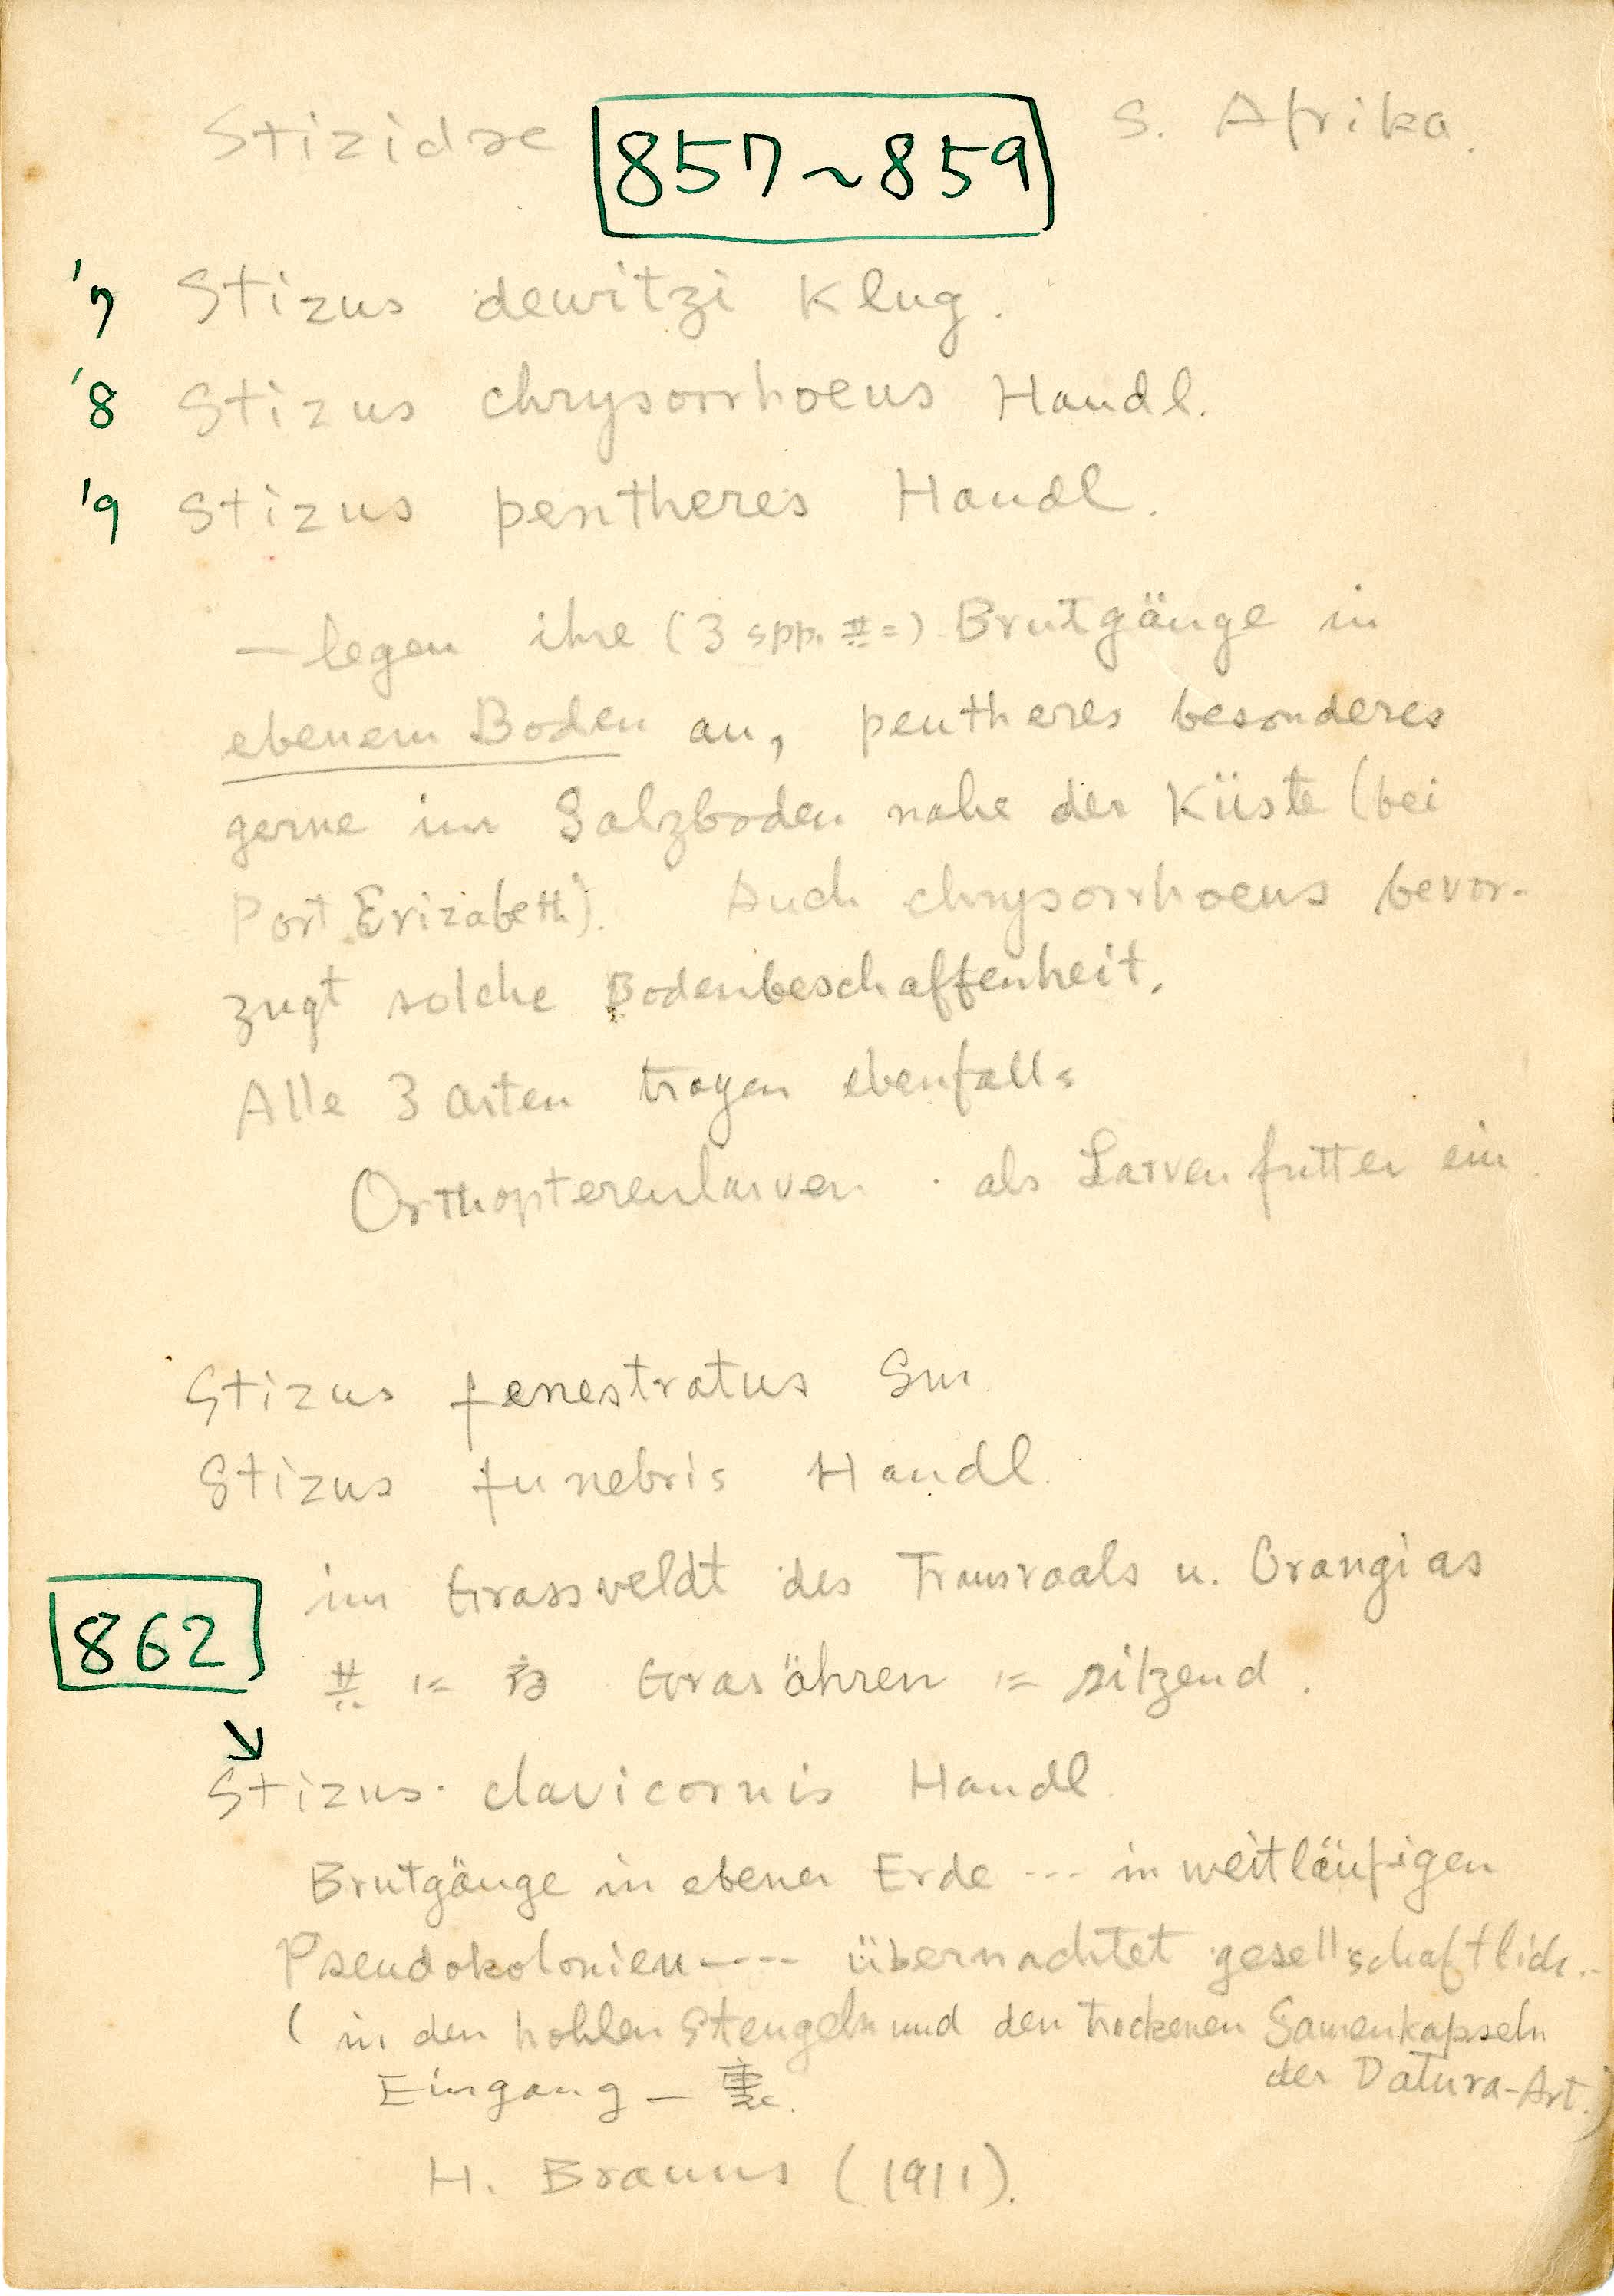 Stizidae 857~859 S. Afrika.
'7 Stizus dewitzi Klug.
'8 Stizus chrysorrhoeus Handl.
'9 Stizus pentheres Handl.
— legen ihre (3 spp. 共ニ) Brutgänge in
ebenem Boden an, pentheres besonderes
gerne im Salzboden nahe der Küste (bei
Port Erizabeth). Auch chrysorrhoeus bevor-
zugt solche Bodenbeschaffenheit.
Alle 3 Arten tragen ebenfalls
Orthopterenlarven als Larvenfutter ein
Stizus fenestratus Sm
Stizus funebris Handl.
im Grassveldt des Transvaals u. Orangias
862
共ニ Grasähren ニ sitzend.
↘
Stizus clavicornis Handl.
Brutgänge in ebener Erde --- in weitläufigen
Pseudokolonien ---- übernachtet gesellschaftlich..
(in den hohlen Stengeln und den trockenen Samenkapseln
der Datura-Art.)
Eingang —
H. Brauns (1911).